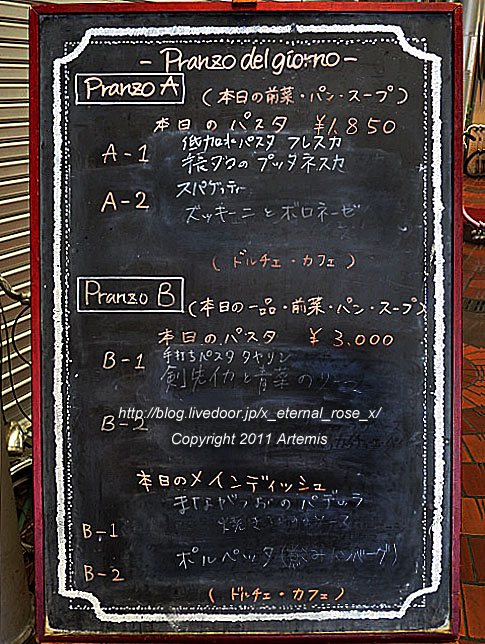 - Pranzo del giorno -
Pranzo A (本日の前菜・パン・スープ)
本日のパスタ ¥1,850
A-1 低加水パスタ フレスカ
タコのプッタネスカ
A-2 スパゲッティー
ズッキーニとボロネーゼ
(ドルチェ・カフェ)
Pranzo B (本日の一品・前菜・パン・スープ)
本日のパスタ ¥3,000
B-1 手打ちパスタ タヤリン
剣先イカと青菜の
http://blog.livedoor.jp/x_eternal_rose_x/
B-2
Copyright 2011 Artemis
本日のメインディッシュ
まながつおのパデッラ
B-1
B-2 ポルペッタ(煮込みハンバーグ)
(ドルチェ・カフェ)